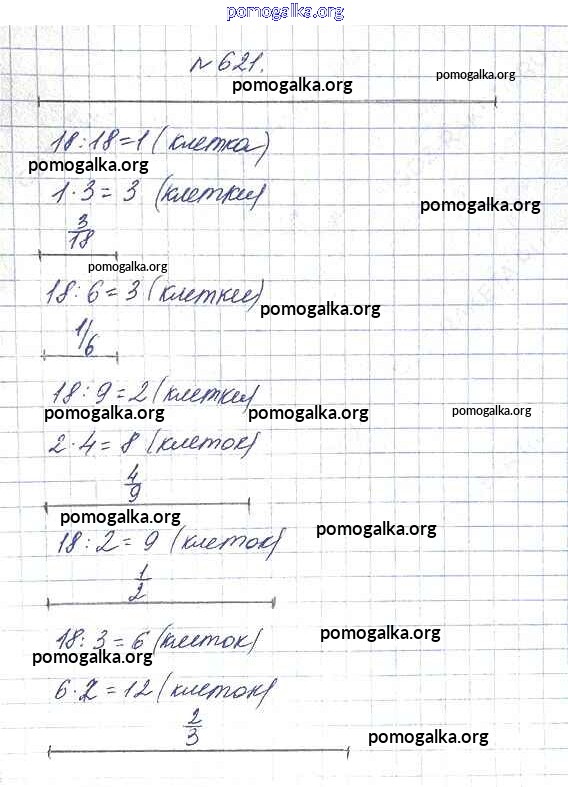 pomogalka.org
№ 621.
pomogalka.org pomogalka.org
18 : 18 = 1 (клетка)
pomogalka.org
1 · 3 = 3 (клетки)
pomogalka.org
3/18
pomogalka.org
18 : 6 = 3 (клетки)
pomogalka.org
1/6
18 : 9 = 2 (клетки)
pomogalka.org pomogalka.org pomogalka.org
2 · 4 = 8 (клеток)
4/9
pomogalka.org pomogalka.org
18 : 2 = 9 (клеток)
1/2
18 : 3 = 6 (клеток)
pomogalka.org pomogalka.org
6 · 2 = 12 (клеток)
2/3
pomogalka.org